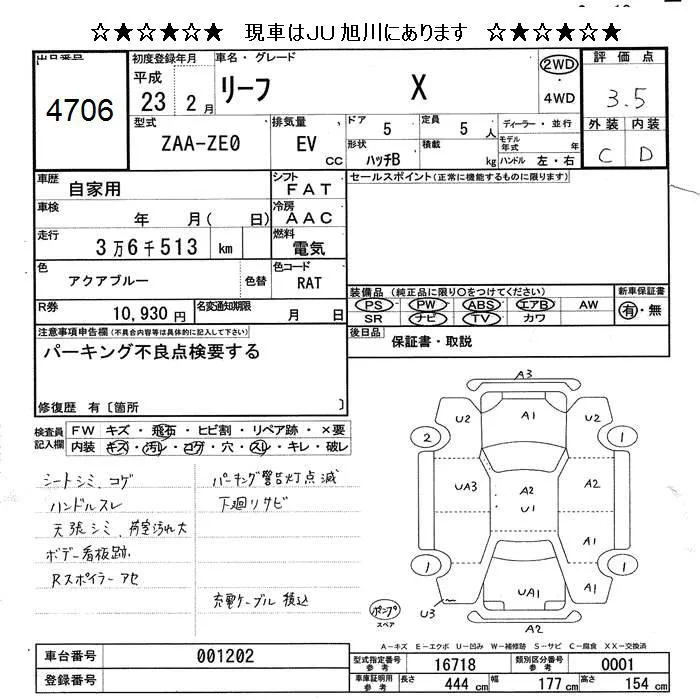 ☆★☆★☆★ 現車はJU旭川にあります ☆★☆★☆★
出品番号 初度登録年月 車名・グレード 評価点
4706 平成 23 2月 リーフ X 2WD ・ 4WD 3.5
外装 内装
C D
型式 排気量 ドア 定員 ディーラー・並行
ZAA-ZE0 EV CC 5 5人 モデル年式 年
形状 積載 ハンドル 左・右
ハッチB kg
車歴 自家用 シフト FAT セールスポイント(正常に機能するものに限ります)
車検 年 月( 日) 冷房 AAC
走行 3万6千513 km 燃料 電気
色 アクアブルー 色替 色コード RAT
装備品(純正品に限り○をつけてください) 新車保証書
PS PW ABS エアB AW 有・無
SR ナビ TV カワ
R券 10,930円 名変通知期限 月 日
後日品 保証書・取説
注意事項申告欄(不具合内容等は具体的に記入して下さい)
パーキング不良点検要する
修復歴 有〔箇所 〕
検査員記入欄 FW キズ・飛石・ヒビ割・リペア跡・×要
内装 キズ・汚レ・コゲ・穴・スレ・キレ・破レ
シートシミ、コゲ
ハンドルスレ
天張シミ、荷室汚れ大
ボデー看板跡
Rスポイラーアセ
パーキング警告灯点滅
下廻リサビ
充電ケーブル積込
A3
U2 A1 U2
2 1
UA3 A2 U1 A2
1 1
UA1 A1
U3 A2
ポンプ
スペア
A−キズ E−エクボ U−凹み W−補修跡 S−サビ C−腐食 XX−交換済
車台番号 001202
登録番号
型式指定番号 参考 16718 類別区分番号 参考 0001
車庫証明 参考 長さ 444cm 幅 177cm 高さ 154cm